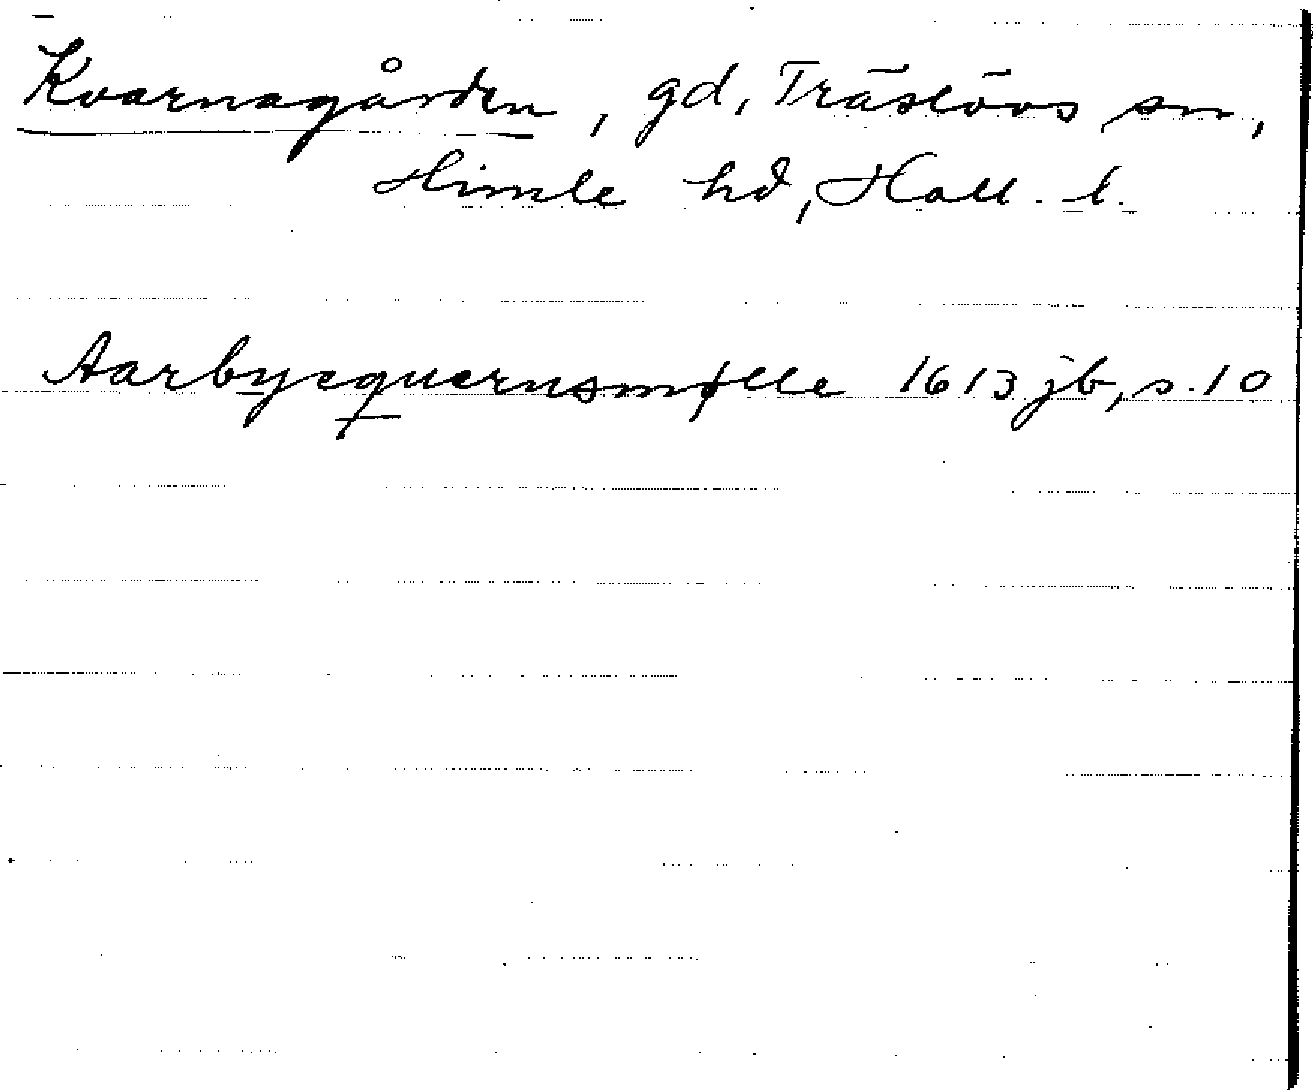 Kvarnagården, gd, Träslövs sn,
Himle hd, Hall. l.
Aarbyequernsmølle 1613 jb, s. 10